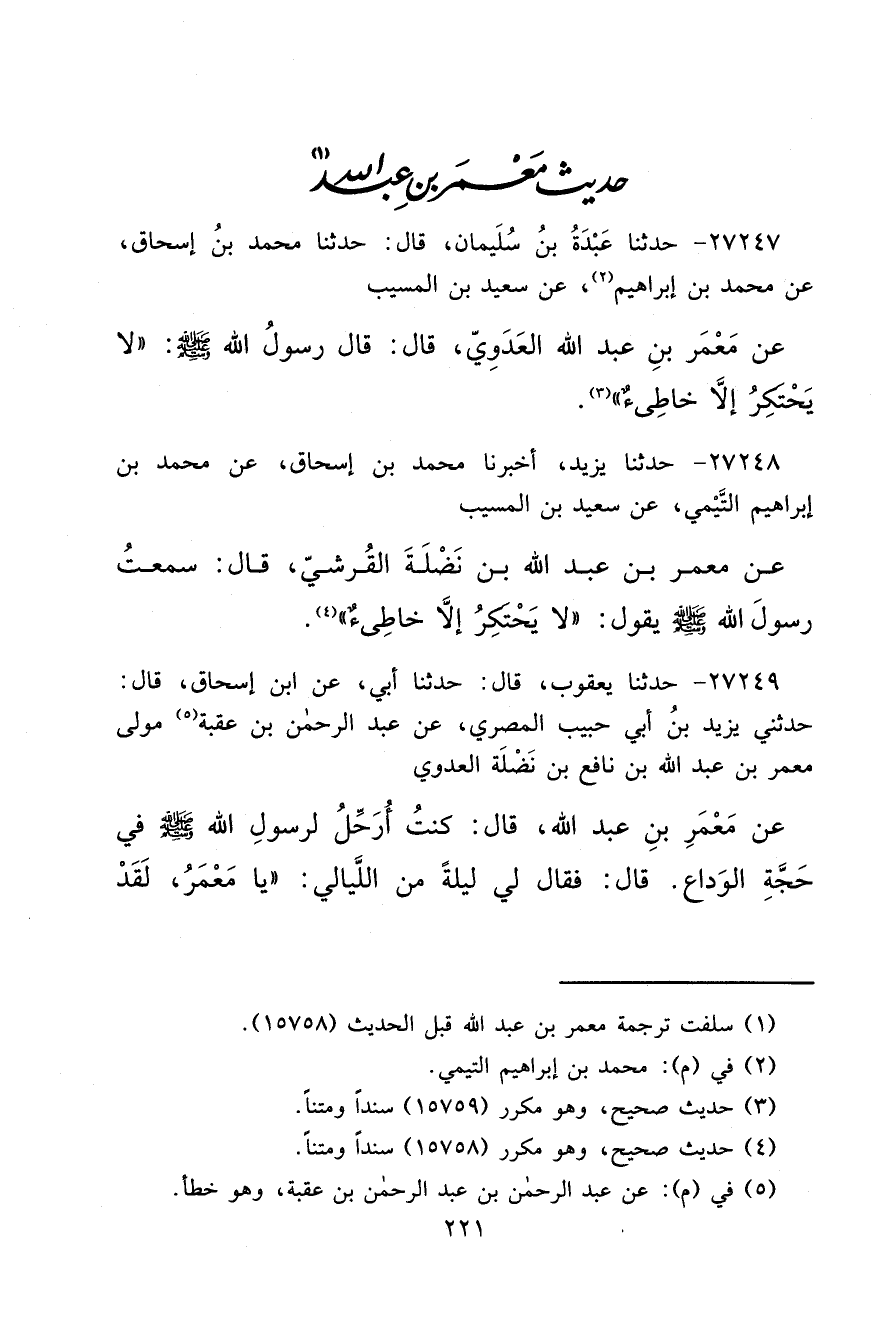 حديث مَعْمَر بن عِبد الله(١)
٢٧٢٤٧- حدثنا عَبْدَةُ بنُ سُلَيمان، قال: حدثنا محمد بنُ إسحاق،
عن محمد بن إبراهيم(٢)، عن سعيد بن المسيب
عن مَعْمَر بنِ عبد الله العَدَوِيّ، قال: قال رسولُ الله ﷺ: «لا
يَحْتَكِرُ إلَّا خاطِىءٌ»(٣).
٢٧٢٤٨- حدثنا يزيد، أخبرنا محمد بن إسحاق، عن محمد بن
إبراهيم التَّيْمي، عن سعيد بن المسيب
عن معمر بن عبد الله بن نَضْلَةَ القُرشيّ، قال: سمعتُ
رسولَ الله ﷺ يقول: «لا يَحْتَكِرُ إلَّا خاطِىءٌ»(٤).
٢٧٢٤٩- حدثنا يعقوب، قال: حدثنا أبي، عن ابن إسحاق، قال:
حدثني يزيد بنُ أبي حبيب المصري، عن عبد الرحمٰن بن عقبة(٥) مولى
معمر بن عبد الله بن نافع بن نَضْلَة العدوي
عن مَعْمَرِ بنِ عبد الله، قال: كنتُ أُرَحِّلُ لرسولِ الله ﷺ في
حَجَّةِ الوَداع. قال: فقال لي ليلةً من اللَّيالي: «يا مَعْمَرُ، لَقَدْ
(١) سلفت ترجمة معمر بن عبد الله قبل الحديث (١٥٧٥٨).
(٢) في (م): محمد بن إبراهيم التيمي.
(٣) حديث صحيح، وهو مكرر (١٥٧٥٩) سنداً ومتناً.
(٤) حديث صحيح، وهو مكرر (١٥٧٥٨) سنداً ومتناً.
(٥) في (م): عن عبد الرحمٰن بن عبد الرحمٰن بن عقبة، وهو خطأ.
٢٢١